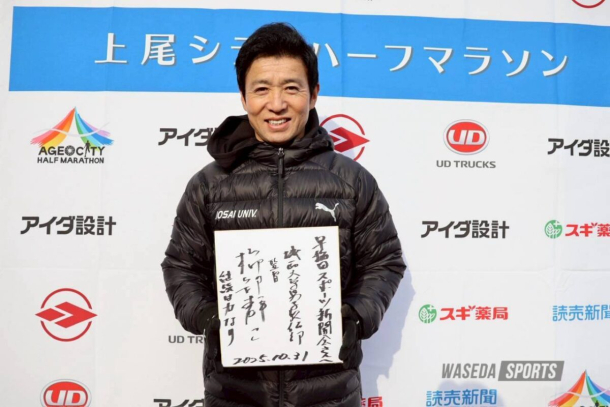 上尾シティハーフマラソン
AGEOCITY
HALF MARATHON
アイダ設計
UD
UD TRUCKS
アイダ設計
アイダ設計
アイダ設計
スギ薬局
読売新聞
JOSAI UNIV.
PUMA
早稲田スポーツ新聞会さんへ
城西大学男子駅伝部
監督
櫛部静二
2025.10.31
UD TRUCKS
スギ薬局
読売新聞
WASEDA SPORTS
読売新聞